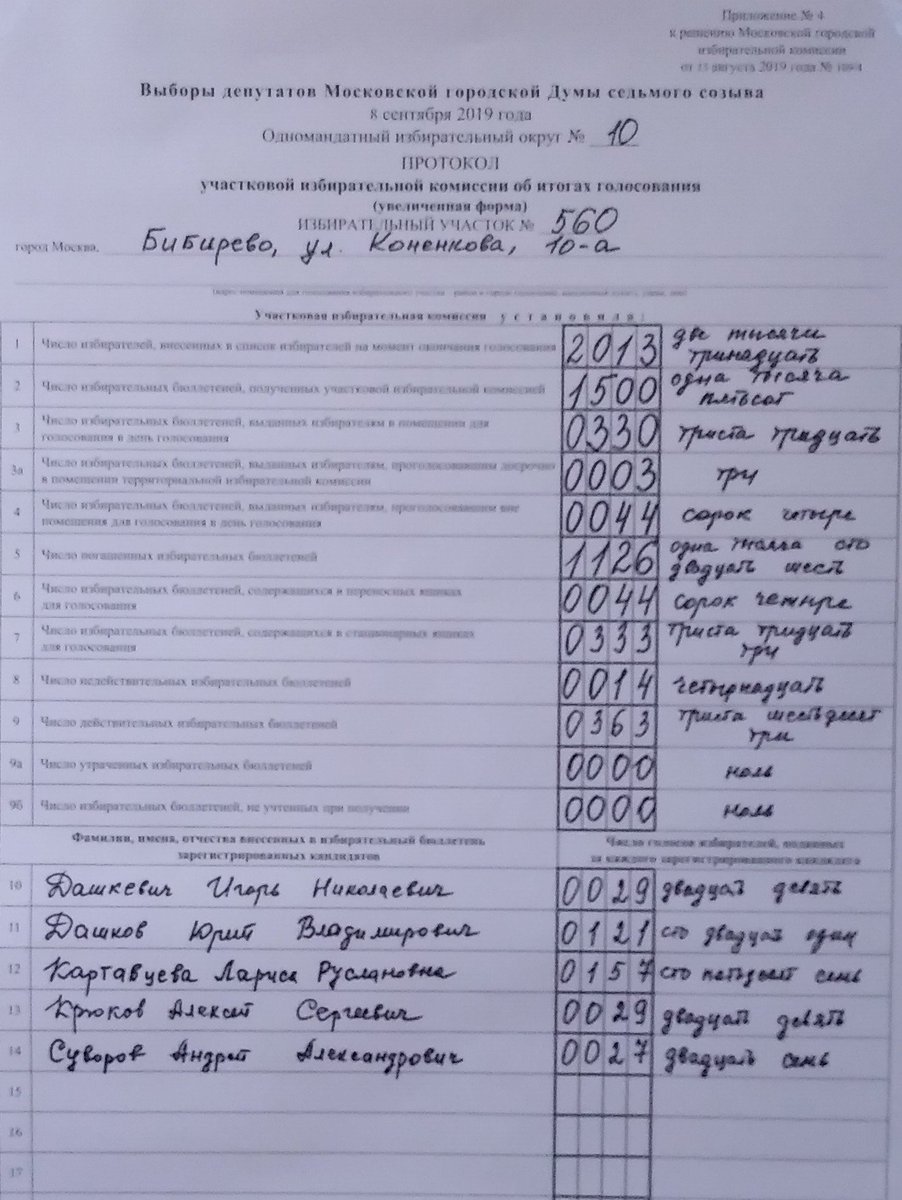 Приложение № 4
к решению Московской городской
избирательной комиссии
от 15 августа 2019 года №
Выборы депутатов Московской городской Думы седьмого созыва
8 сентября 2019 года
Одномандатный избирательный округ № 10
ПРОТОКОЛ
участковой избирательной комиссии об итогах голосования
(увеличенная форма)
ИЗБИРАТЕЛЬНЫЙ УЧАСТОК № 560
город Москва, Бибирево, ул. Коненкова, 10-а
Участковая избирательная комиссия установила:
1 Число избирателей, внесенных в список избирателей на момент окончания голосования 2013 две тысячи
тринадцать
2 Число избирательных бюллетеней, полученных участковой избирательной комиссией 1500 одна тысяча
пятьсот
3 Число избирательных бюллетеней, выданных избирателям в помещении для
голосования в день голосования 0330 триста тридцать
3а Число избирательных бюллетеней, выданных избирателям, проголосовавшим досрочно
в помещении территориальной избирательной комиссии 0003 три
4 Число избирательных бюллетеней, выданных избирателям, проголосовавшим вне
помещения для голосования в день голосования 0044 сорок четыре
5 Число погашенных избирательных бюллетеней 1126 одна тысяча сто
двадцать шесть
6 Число избирательных бюллетеней, содержащихся в переносных ящиках
для голосования 0044 сорок четыре
7 Число избирательных бюллетеней, содержащихся в стационарных ящиках
для голосования 0333 триста тридцать
три
8 Число недействительных избирательных бюллетеней 0014 четырнадцать
9 Число действительных избирательных бюллетеней 0363 триста шестьдесят
три
9а Число утраченных избирательных бюллетеней 0000 ноль
9б Число избирательных бюллетеней, не учтенных при получении 0000 ноль
Фамилии, имена, отчества внесенных в избирательный бюллетень
зарегистрированных кандидатов
Число голосов избирателей, поданных
за каждого зарегистрированного кандидата
10 Дашкевич Игорь Николаевич 0029 двадцать девять
11 Дашков Юрий Владимирович 0121 сто двадцать один
12 Картавцева Лариса Руслановна 0157 сто пятьдесят семь
13 Крюков Алексей Сергеевич 0029 двадцать девять
14 Суворов Андрей Александрович 0027 двадцать семь
15
16
17